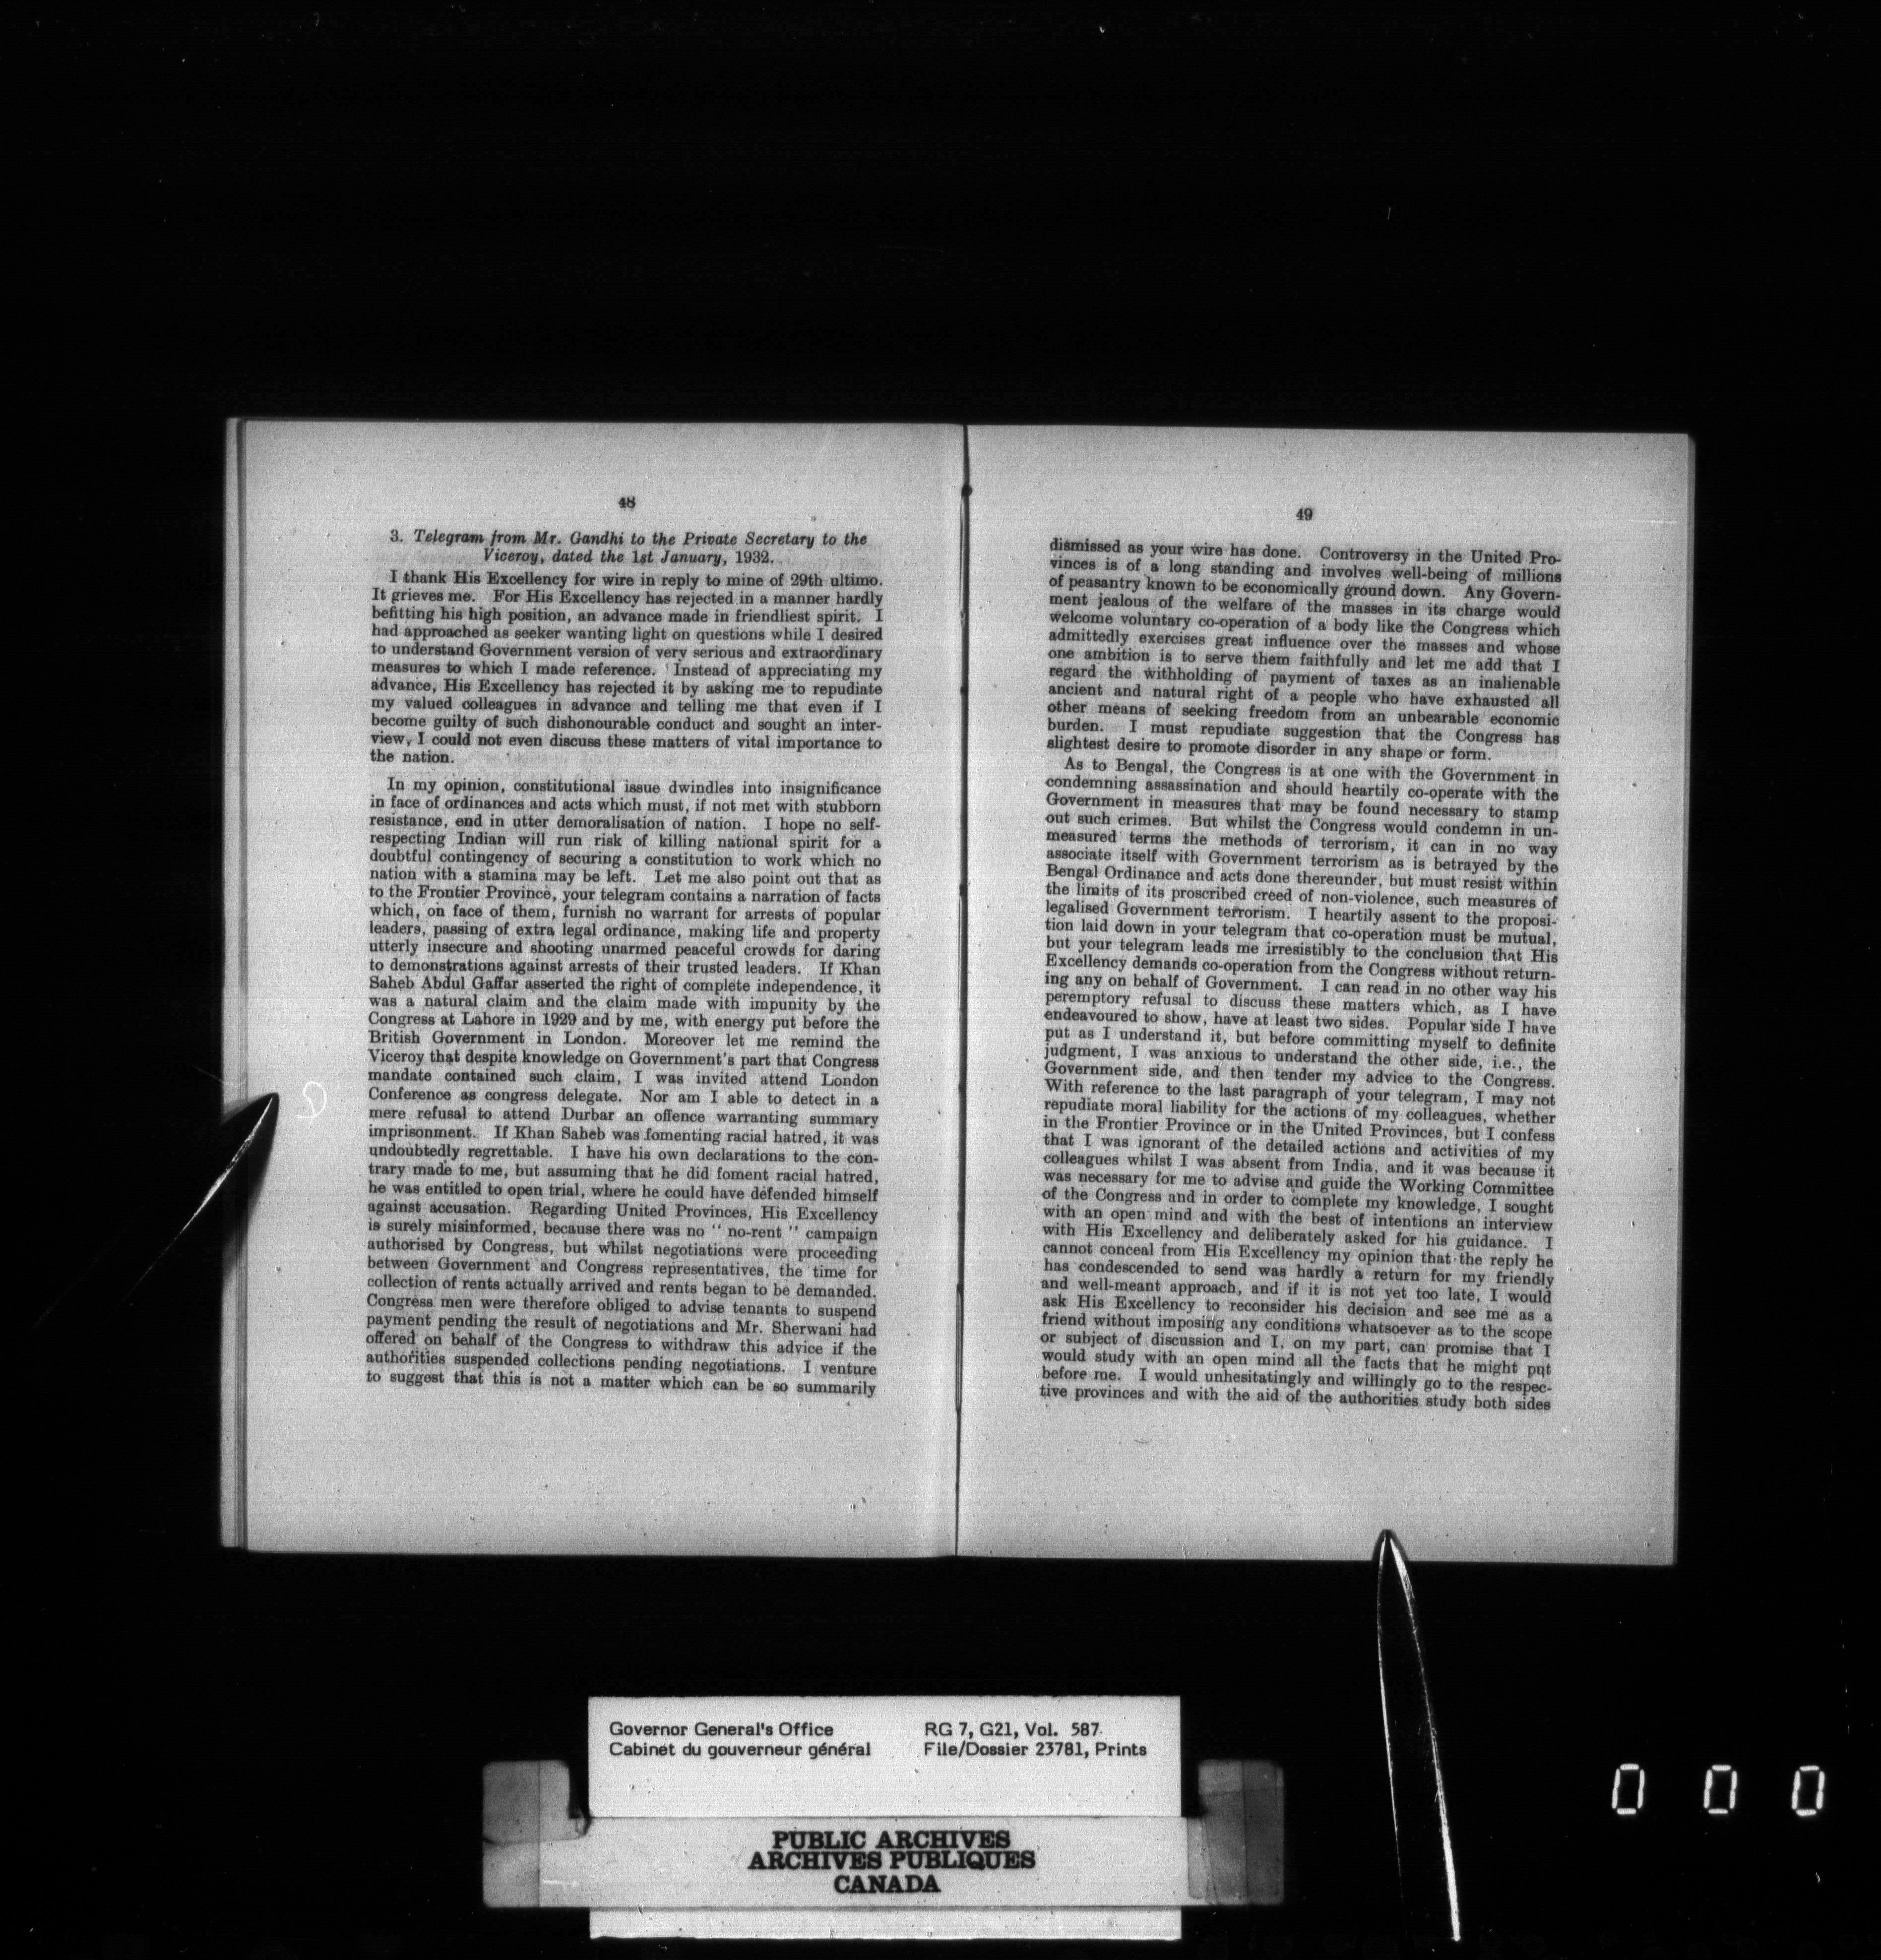 48
3. Telegram from Mr. Gandhi to the Private Secretary to the
Viceroy, dated the 1st January, 1932.
I thank His Excellency for wire in reply to mine of 29th ultimo.
It grieves me. For His Excellency has rejected in a manner hardly
befitting his high position, an advance made in friendliest spirit. I
had approached as seeker wanting light on questions while I desired
to understand Government version of very serious and extraordinary
measures to which I made reference. Instead of appreciating my
advance, His Excellency has rejected it by asking me to repudiate
my valued colleagues in advance and telling me that even if I
become guilty of such dishonourable conduct and sought an inter-
view, I could not even discuss these matters of vital importance to
the nation.
In my opinion, constitutional issue dwindles into insignificance
in face of ordinances and acts which must, if not met with stubborn
resistance, end in utter demoralisation of nation. I hope no self-
respecting Indian will run risk of killing national spirit for a
doubtful contingency of securing a constitution to work which no
nation with a stamina may be left. Let me also point out that as
to the Frontier Province, your telegram contains a narration of facts
which, on face of them, furnish no warrant for arrests of popular
leaders, passing of extra legal ordinance, making life and property
utterly insecure and shooting unarmed peaceful crowds for daring
to demonstrations against arrests of their trusted leaders. If Khan
Saheb Abdul Gaffar asserted the right of complete independence, it
was a natural claim and the claim made with impunity by the
Congress at Lahore in 1929 and by me, with energy put before the
British Government in London. Moreover let me remind the
Viceroy that despite knowledge on Government's part that Congress
mandate contained such claim, I was invited attend London
Conference as congress delegate. Nor am I able to detect in a
mere refusal to attend Durbar an offence warranting summary
imprisonment. If Khan Saheb was fomenting racial hatred, it was
undoubtedly regrettable. I have his own declarations to the con-
trary made to me, but assuming that he did foment racial hatred,
he was entitled to open trial, where he could have defended himself
against accusation. Regarding United Provinces, His Excellency
is surely misinformed, because there was no " no-rent " campaign
authorised by Congress, but whilst negotiations were proceeding
between Government and Congress representatives, the time for
collection of rents actually arrived and rents began to be demanded.
Congress men were therefore obliged to advise tenants to suspend
payment pending the result of negotiations and Mr. Sherwani had
offered on behalf of the Congress to withdraw this advice if the
authorities suspended collections pending negotiations. I venture
to suggest that this is not a matter which can be so summarily
49
dismissed as your wire has done. Controversy in the United Pro-
vinces is of a long standing and involves well-being of millions
of peasantry known to be economically ground down. Any Govern-
ment jealous of the welfare of the masses in its charge would
welcome voluntary co-operation of a body like the Congress which
admittedly exercises great influence over the masses and whose
one ambition is to serve them faithfully and let me add that I
regard the withholding of payment of taxes as an inalienable
ancient and natural right of a people who have exhausted all
other means of seeking freedom from an unbearable economic
burden. I must repudiate suggestion that the Congress has
slightest desire to promote disorder in any shape or form.
As to Bengal, the Congress is at one with the Government in
condemning assassination and should heartily co-operate with the
Government in measures that may be found necessary to stamp
out such crimes. But whilst the Congress would condemn in un-
measured terms the methods of terrorism, it can in no way
associate itself with Government terrorism as is betrayed by the
Bengal Ordinance and acts done thereunder, but must resist within
the limits of its proscribed creed of non-violence, such measures of
legalised Government terrorism. I heartily assent to the proposi-
tion laid down in your telegram that co-operation must be mutual,
but your telegram leads me irresistibly to the conclusion that His
Excellency demands co-operation from the Congress without return-
ing any on behalf of Government. I can read in no other way his
peremptory refusal to discuss these matters which, as I have
endeavoured to show, have at least two sides. Popular side I have
put as I understand it, but before committing myself to definite
judgment, I was anxious to understand the other side, i.e., the
Government side, and then tender my advice to the Congress.
With reference to the last paragraph of your telegram, I may not
repudiate moral liability for the actions of my colleagues, whether
in the Frontier Province or in the United Provinces, but I confess
that I was ignorant of the detailed actions and activities of my
colleagues whilst I was absent from India, and it was because it
was necessary for me to advise and guide the Working Committee
of the Congress and in order to complete my knowledge, I sought
with an open mind and with the best of intentions an interview
with His Excellency and deliberately asked for his guidance. I
cannot conceal from His Excellency my opinion that the reply he
has condescended to send was hardly a return for my friendly
and well-meant approach, and if it is not yet too late, I would
ask His Excellency to reconsider his decision and see me as a
friend without imposing any conditions whatsoever as to the scope
or subject of discussion and I, on my part, can promise that I
would study with an open mind all the facts that he might put
before me. I would unhesitatingly and willingly go to the respec-
tive provinces and with the aid of the authorities study both sides
Governor General's Office
Cabinet du gouverneur général
RG 7, G21, Vol. 587
File/Dossier 23781, Prints
PUBLIC ARCHIVES
ARCHIVES PUBLIQUES
CANADA
0 0 0